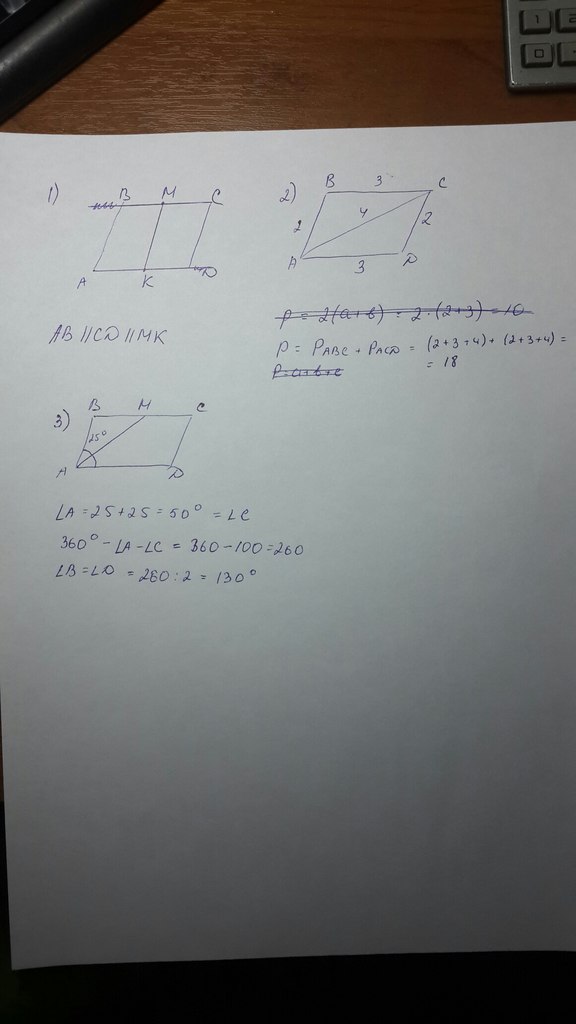 1)
B M C
A K D
AB || CD || MK
2)
B 3 C
2 4 2
A 3 D
P = 2(a+b) = 2·(2+3) = 10
P = PABC + PACD = (2+3+4) + (2+3+4) =
= 18
P = a+b+c
3)
B M C
25°
A D
∠A = 25+25 = 50° = ∠C
360° - ∠A - ∠C = 360 - 100 = 260
∠B = ∠D = 260 : 2 = 130°